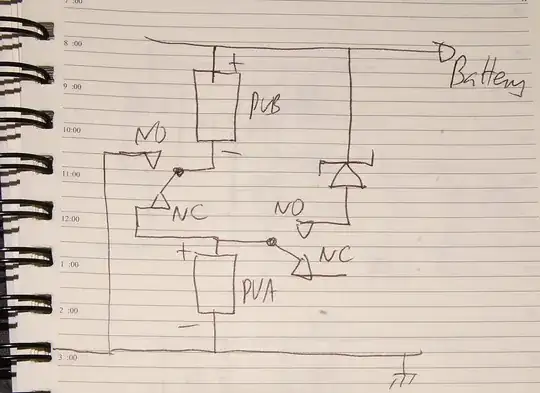 8 :00
+
Battery
9 :00
PVB
10:00
NO
-
11:00
NC
NO
12:00
+
NC
1 :00
PVA
2 :00
-
3 :00